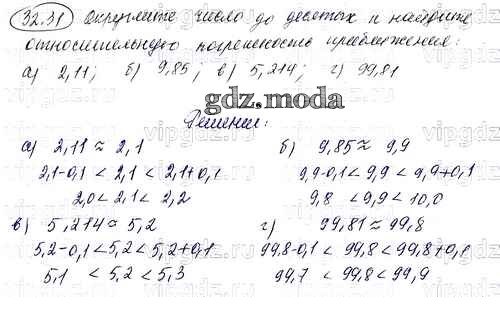 32.31 Округлите число до десятых и найдите
относительную погрешность приближения:
а) 2,11; б) 9,85; в) 5,214; г) 99,81
gdz.moda
Решение:
а) 2,11 ≈ 2,1
2,1-0,1 < 2,1 < 2,1+0,1
2,0 < 2,1 < 2,2
б) 9,85 ≈ 9,9
9,9-0,1 < 9,9 < 9,9+0,1
9,8 < 9,9 < 10,0
в) 5,214 ≈ 5,2
5,2-0,1 < 5,2 < 5,2+0,1
5,1 < 5,2 < 5,3
г) 99,81 ≈ 99,8
99,8-0,1 < 99,8 < 99,8+0,1
99,7 < 99,8 < 99,9